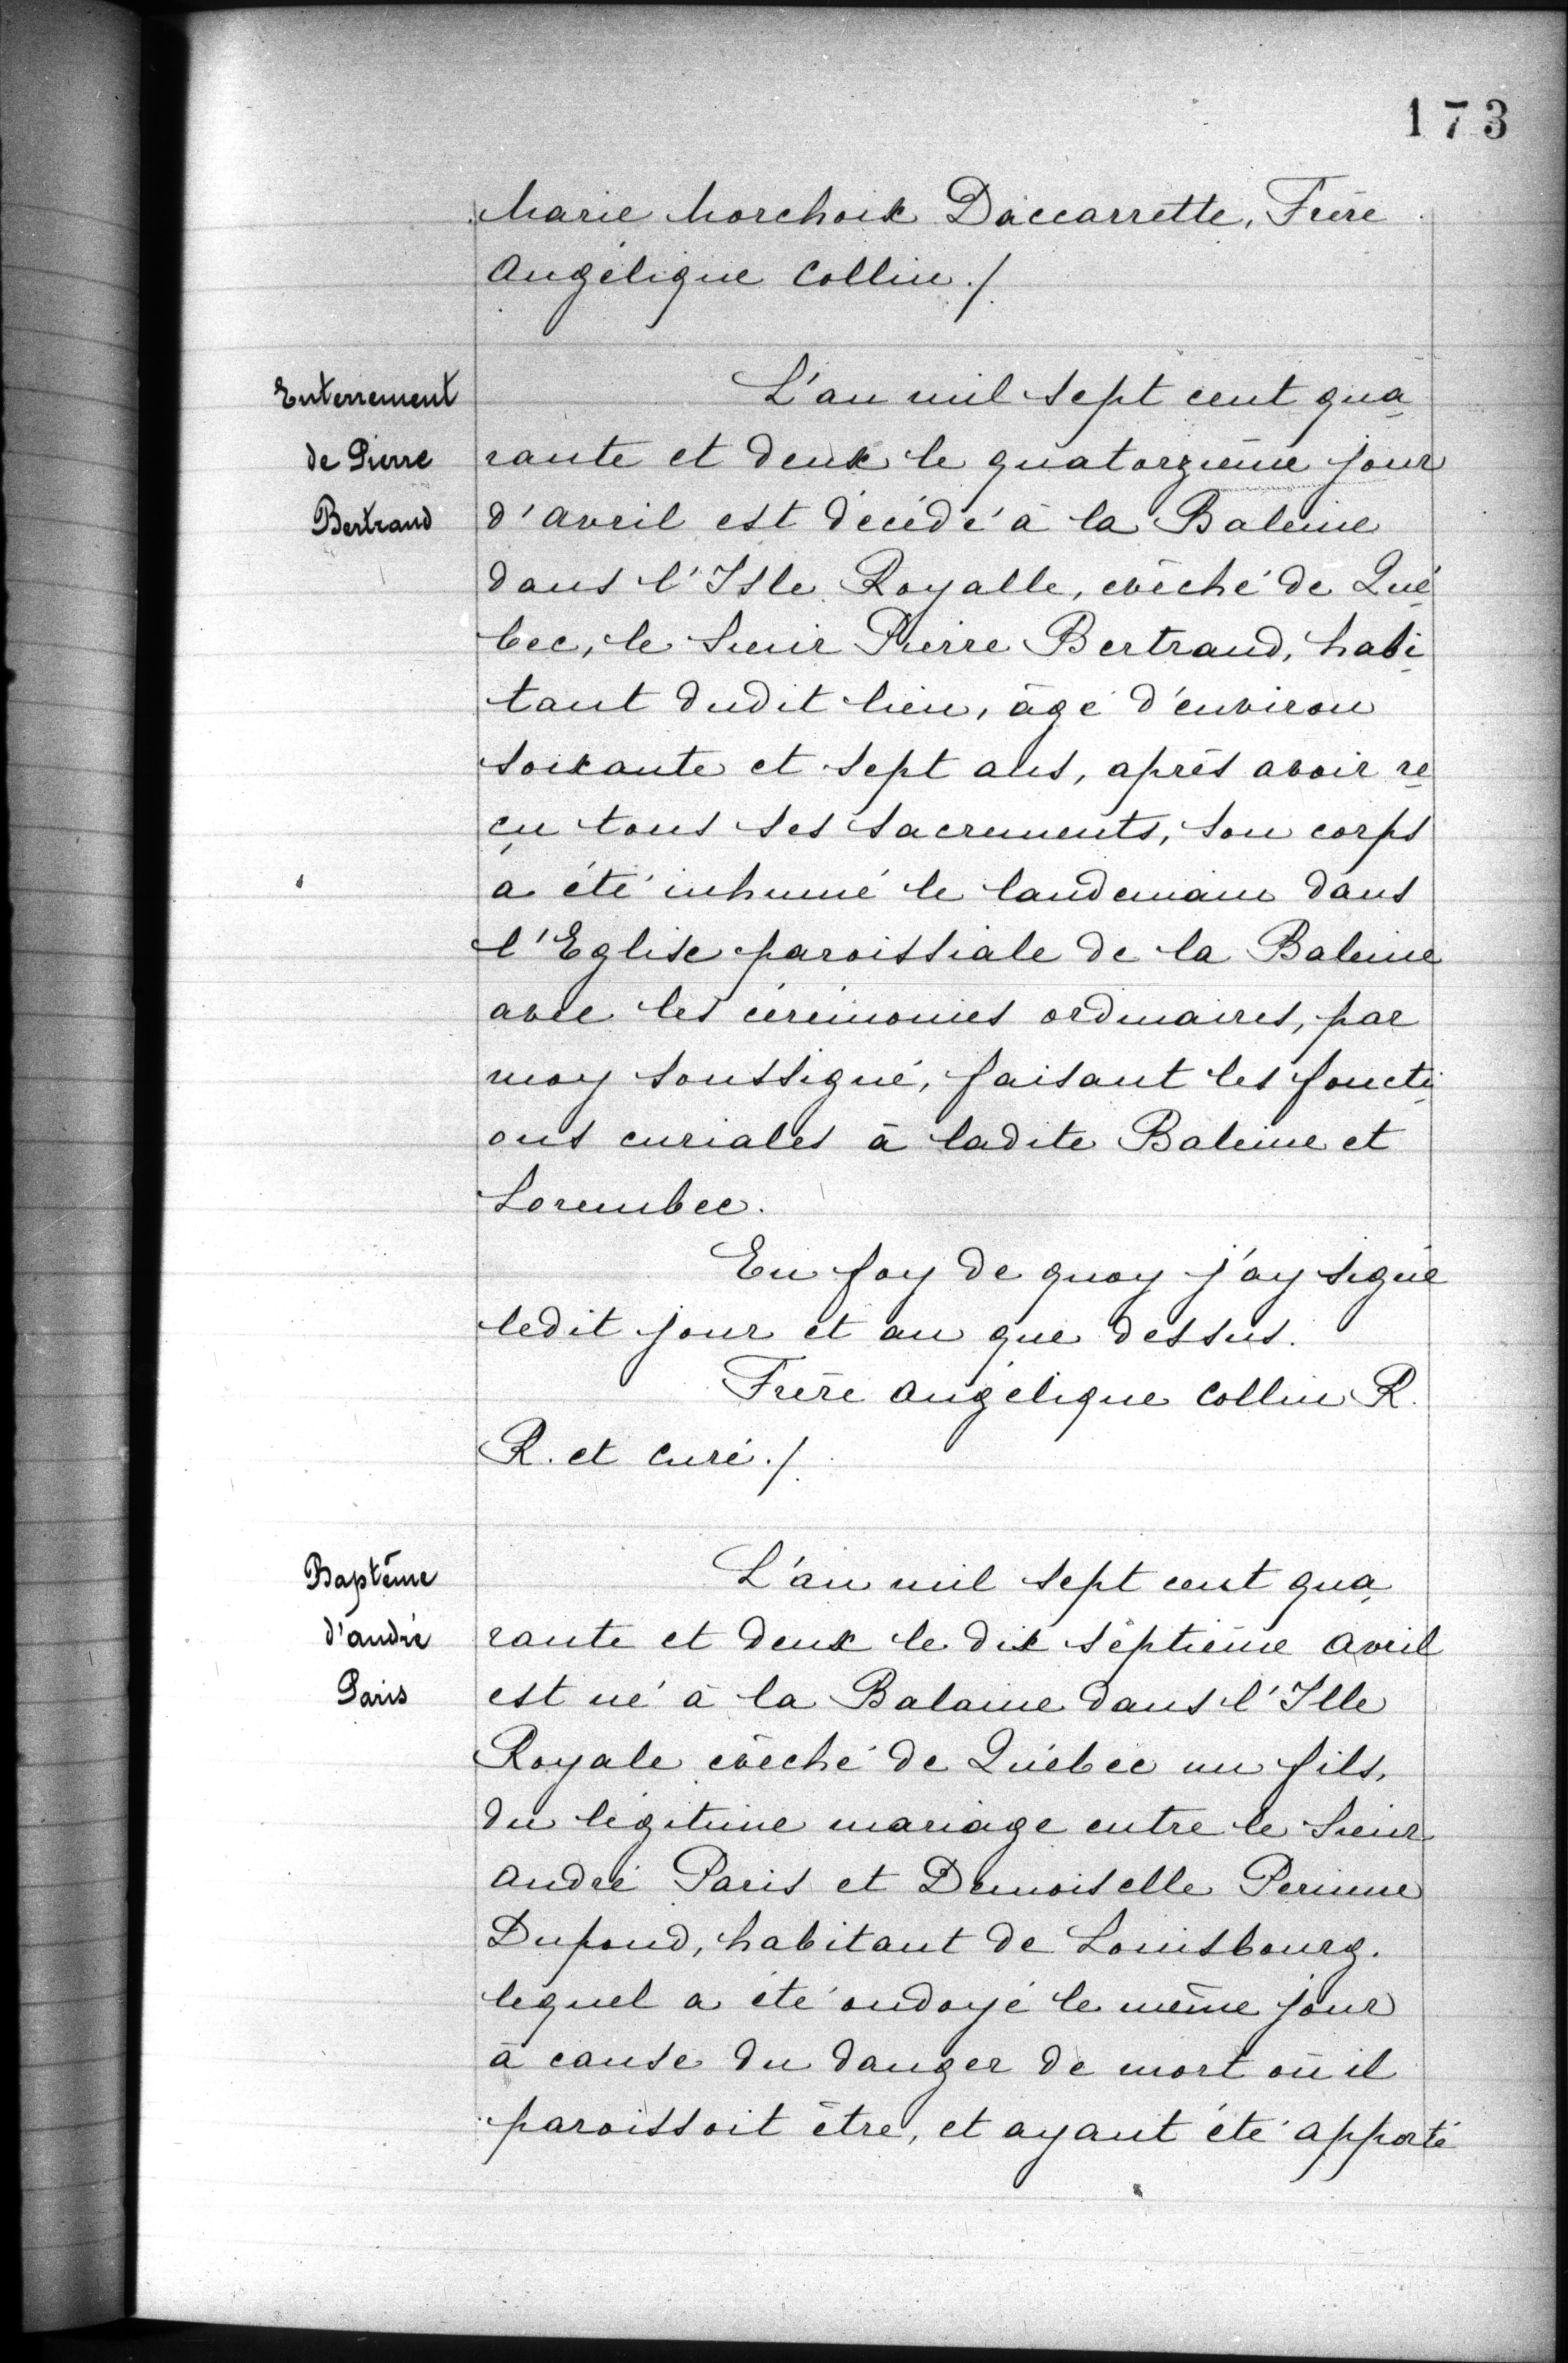 173
Marie Morchoix Daccarrette, Frère
Angélique Collin./.
Enterrement
de Pierre
Bertrand
L'an mil sept cent qua
rante et deux le quatorzième jour
d'avril est décédé à la Baleine
dans l'Isle Royalle, evêché de Qué
bec, le Sieur Pierre Bertrand, habi
tant dudit lieu, âgé d'environ
soixante et sept ans, après avoir re
çu tous ses sacrements, son corps
a été inhumé le landemain dans
l'Eglise paroissiale de la Baleine
avec les cérémonies ordinaires, par
moy soussigné, faisant les foncti
ons curiales à ladite Baleine et
Lorembec.
En foy de quoy j'ay signé
ledit jour et an que dessus.
Frère Angélique Collin R.
R. et Curé./.
Baptême
d'André
Paris
L'an mil sept cent qua
rante et deux le dix septième Avril
est né à la Balaine dans l'Ille
Royale evêché de Québec un fils,
du légitime mariage entre le Sieur
André Paris et Demoiselle Perinne
Dupond, habitant de Louisbourg.
lequel a été ondoyé le même jour
à cause du danger de mort où il
paroissoit être, et ayant été apporté